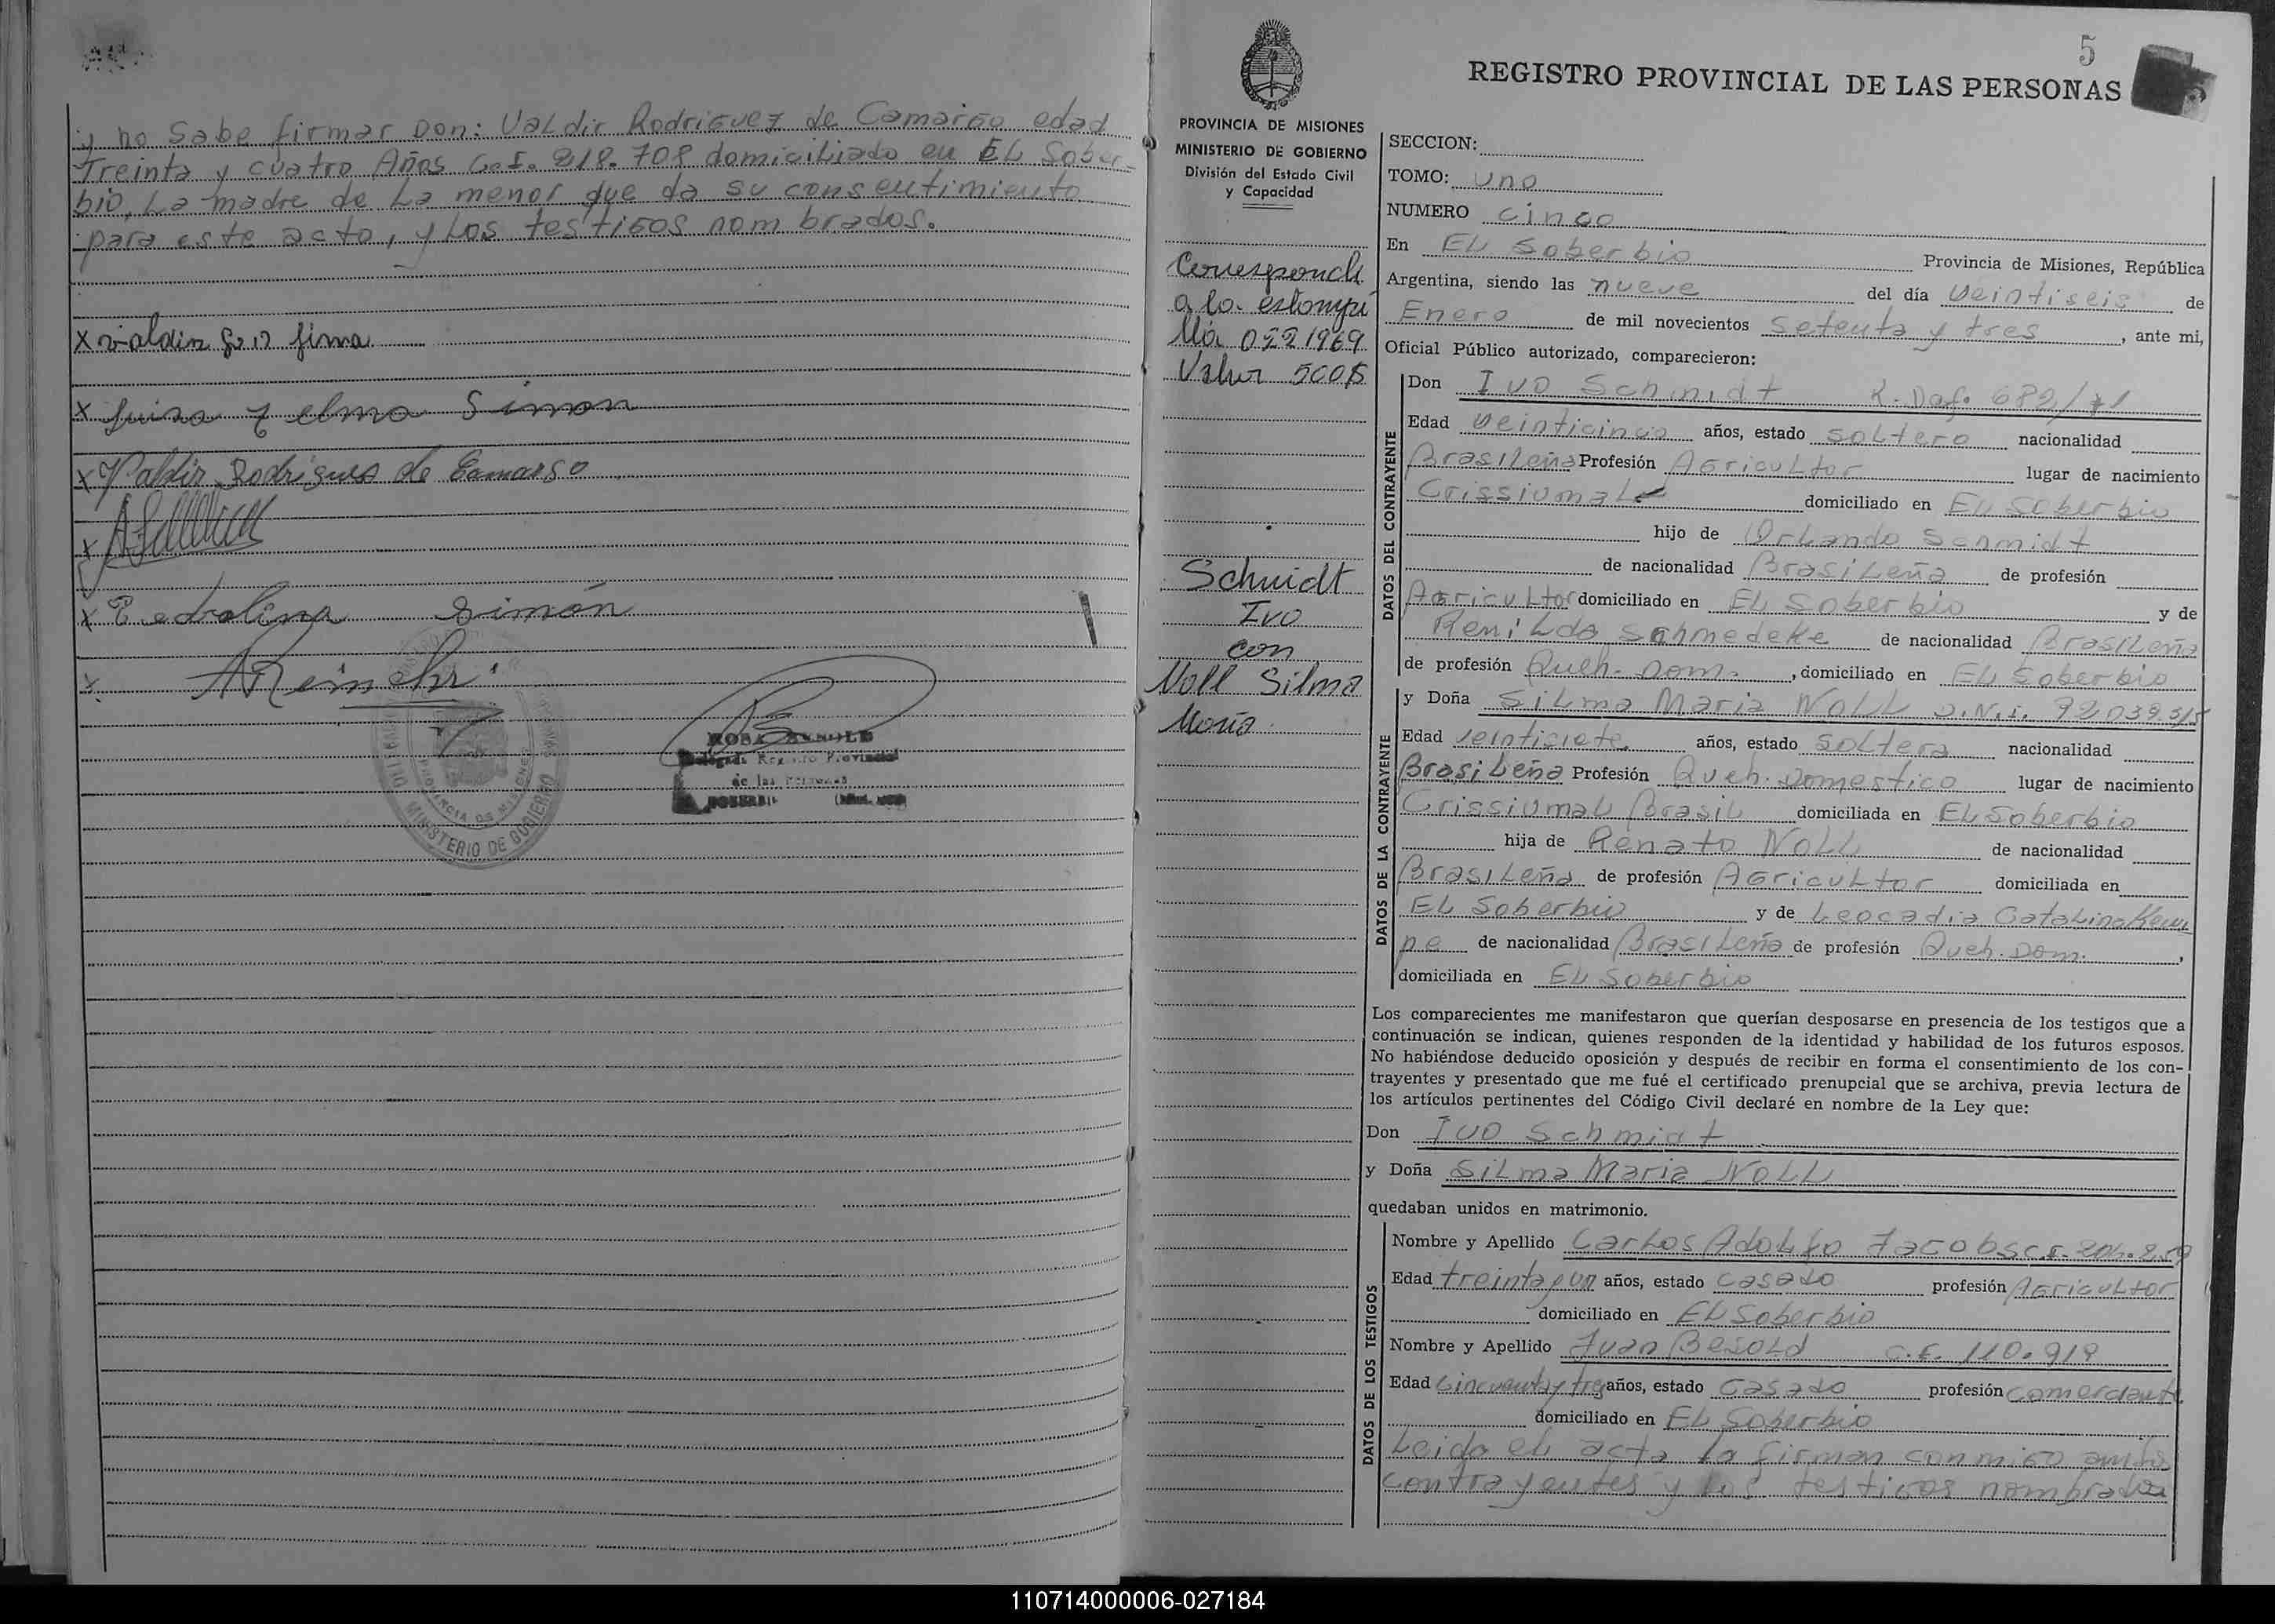 y no sabe firmar Don: Valdir Rodriguez de Camargo edad
Treinta y cuatro Años C.I. 218.708 domiciliado en EL Sober-
bio, La madre de La menor que da su consentimiento
para este acto, y Los testigos nombrados.
x
x Luisa Zelma Simon
x Valdir Rodrigues de Camargo
x
x Pedrolina Simón
ROSA
Delegada Registro Provincial
de las Personas
PROVINCIA DE MISIONES
MINISTERIO DE GOBIERNO
5
REGISTRO PROVINCIAL DE LAS PERSONAS
PROVINCIA DE MISIONES
MINISTERIO DE GOBIERNO
División del Estado Civil
y Capacidad
Corresponde
a la estampi
lla 0221969
Valor 500$
Schmidt
Ivo
con
Noll Silma
María
SECCION:
TOMO: uno
NUMERO cinco
En EL Soberbio Provincia de Misiones, República
Argentina, siendo las nueve del día veintiseis de
Enero de mil novecientos setenta y tres, ante mi,
Oficial Público autorizado, comparecieron:
DATOS DEL CONTRAYENTE
Don Ivo Schmidt 682/71
Edad veinticinco años, estado soltero nacionalidad
Brasileña Profesión Agricultor lugar de nacimiento
Crissiumal domiciliado en EL Soberbio
hijo de Orlando Schmidt
de nacionalidad Brasileña de profesión
Agricultor domiciliado en EL Soberbio y de
Renilda Schmedeke de nacionalidad Brasileña
de profesión Queh. Dom., domiciliado en EL Soberbio
DATOS DE LA CONTRAYENTE
y Doña Silma Maria NOLL D.N.I. 92.039.515
Edad veintisiete años, estado soltera nacionalidad
Brasileña Profesión Queh. Domestico lugar de nacimiento
Crissiumal Brasil domiciliada en EL Soberbio
hija de Renato NOLL de nacionalidad
Brasileña de profesión Agricultor domiciliada en
EL Soberbio y de Leocadia Catalina Kem
pe de nacionalidad Brasileña de profesión Queh. Dom.,
domiciliada en EL Soberbio
Los comparecientes me manifestaron que querían desposarse en presencia de los testigos que a
continuación se indican, quienes responden de la identidad y habilidad de los futuros esposos.
No habiéndose deducido oposición y después de recibir en forma el consentimiento de los con-
trayentes y presentado que me fué el certificado prenupcial que se archiva, previa lectura de
los artículos pertinentes del Código Civil declaré en nombre de la Ley que:
Don Ivo Schmidt
y Doña Silma Maria NOLL
quedaban unidos en matrimonio.
DATOS DE LOS TESTIGOS
Nombre y Apellido Carlos Adolfo Jacobs C.I.
Edad treinta y un años, estado casado profesión Agricultor
domiciliado en EL Soberbio
Nombre y Apellido Juan Besold C.I. 110.919
Edad cincuenta y tres años, estado casado profesión comerciante
domiciliado en EL Soberbio
Leida el acta la firman conmigo ambos
contrayentes y los testigos nombrados
110714000006-027184